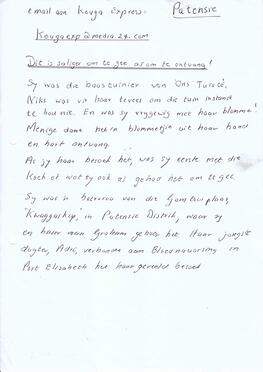 email aan Kouga Express:
Patensie
Kougaexp@media.24.com
Dit is saliger om te gee, as om te ontvang!
Sy was die baastuinier van 'Ons Tuiste',
Niks was vir haar teveel om die tuin instand
te hou nie. En was sy vrygewig met haar blomme!
Menige dame het 'n blommetjie uit haar hand
en hart ontvang.
As jy haar besoek het, was sy eerste met die
Koek of wat sy ook al gehad het om te gee.
Sy was 'n boervrou van die plaas,
in Patensie Distrik, waar sy
en haar man Graham geboer het. Haar jongste
dogter, Adri, verbonde aan in
Port Elizabeth het haar gereeld besoek